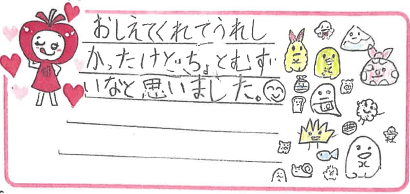 おしえてくれてうれし
かったけどちょとむずい
いなと思いました。